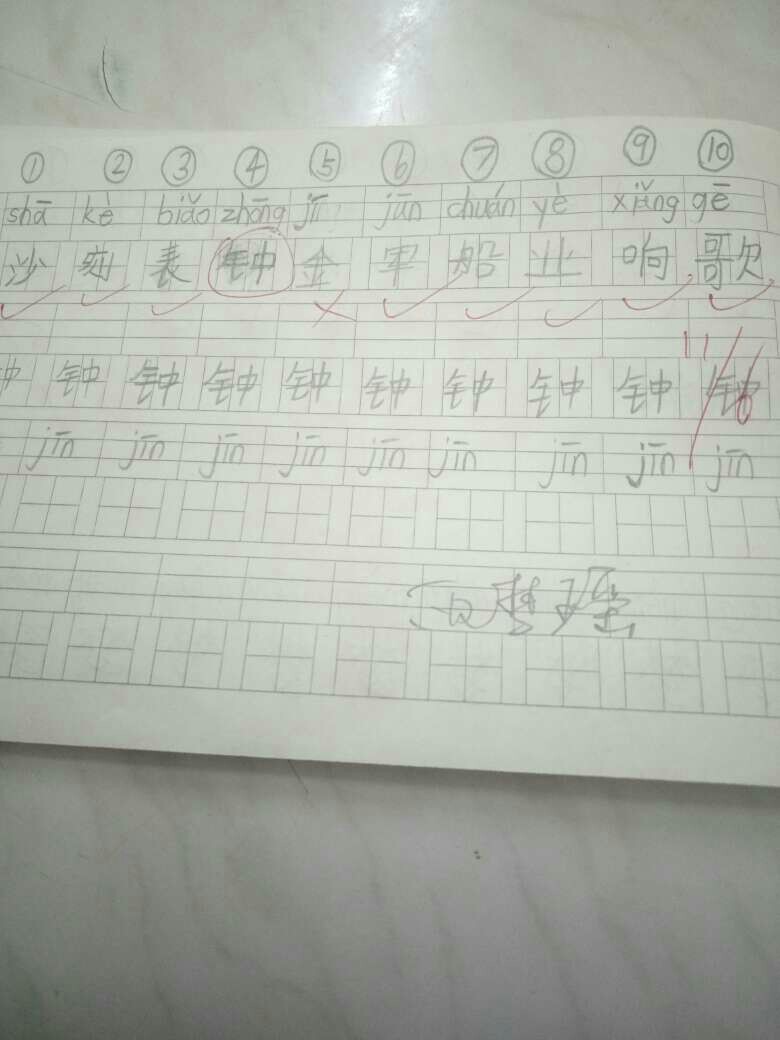 ① ② ③ ④ ⑤ ⑥ ⑦ ⑧ ⑨ ⑩
shā kè biǎo zhōng jī jūn chuán yè xiǎng gē
沙 刻 表 钟 金 军 船 业 响 歌
钟 钟 钟 钟 钟 钟 钟 钟 钟 钟
jīn jīn jīn jīn jīn jīn jīn jīn jīn